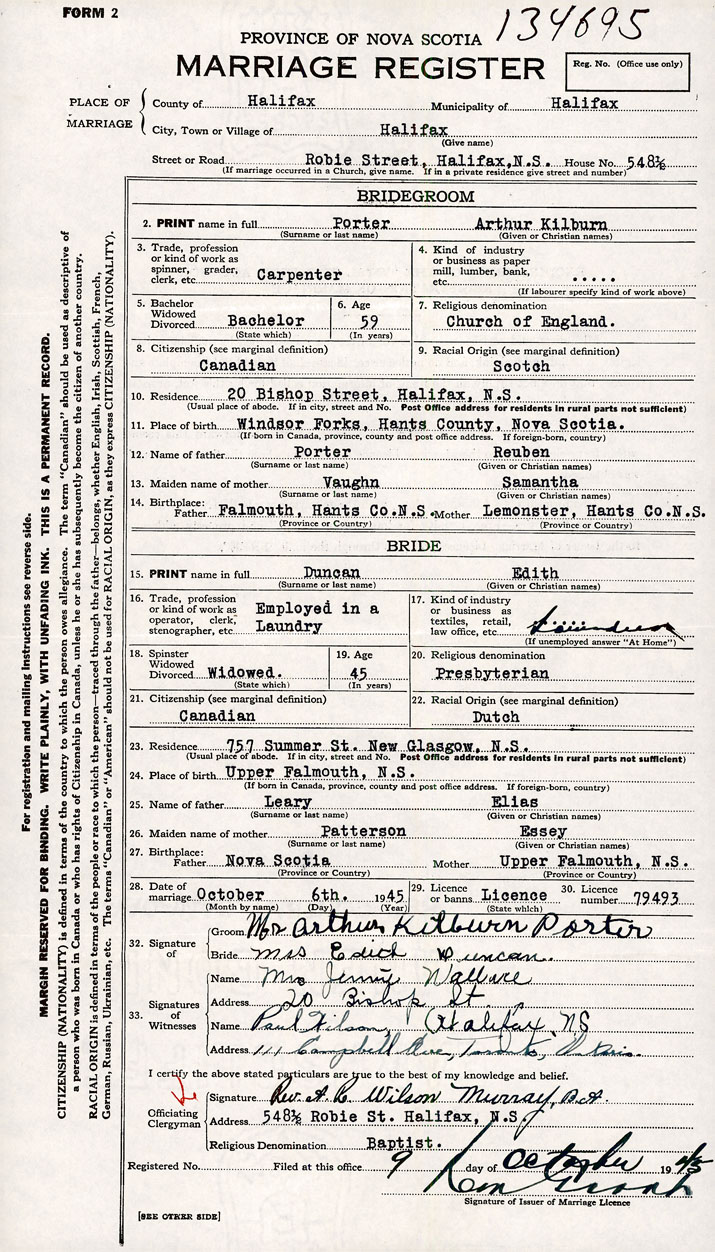 FORM 2
134695
PROVINCE OF NOVA SCOTIA
MARRIAGE REGISTER
Reg. No. (Office use only)
PLACE OF MARRIAGE
County of Halifax Municipality of Halifax
City, Town or Village of Halifax
(Give name)
Street or Road Robie Street, Halifax, N.S. House No. 548½
(If marriage occurred in a Church, give name. If in a private residence give street and number)
BRIDEGROOM
2. PRINT name in full Porter Arthur Kilburn
(Surname or last name) (Given or Christian names)
3. Trade, profession or kind of work as spinner, grader, clerk, etc. Carpenter
4. Kind of industry or business as paper mill, lumber, bank, etc. .....
(If labourer specify kind of work above)
5. Bachelor Widowed Divorced Bachelor
(State which)
6. Age 59
(In years)
7. Religious denomination
Church of England.
8. Citizenship (see marginal definition)
Canadian
9. Racial Origin (see marginal definition)
Scotch
10. Residence 20 Bishop Street, Halifax, N.S.
(Usual place of abode. If in city, street and No. Post Office address for residents in rural parts not sufficient)
11. Place of birth Windsor Forks, Hants County, Nova Scotia.
(If born in Canada, province, county and post office address. If foreign-born, country)
12. Name of father Porter Reuben
(Surname or last name) (Given or Christian names)
13. Maiden name of mother Vaughn Samantha
(Surname or last name) (Given or Christian names)
14. Birthplace: Father Falmouth, Hants Co.N.S. Mother Lemonster, Hants Co.N.S.
(Province or Country) (Province or Country)
BRIDE
15. PRINT name in full Duncan Edith
(Surname or last name) (Given or Christian names)
16. Trade, profession or kind of work as operator, clerk, stenographer, etc. Employed in a Laundry
17. Kind of industry or business as textiles, retail, law office, etc.
(If unemployed answer "At Home")
18. Spinster Widowed Divorced Widowed.
(State which)
19. Age 45
(In years)
20. Religious denomination
Presbyterian
21. Citizenship (see marginal definition)
Canadian
22. Racial Origin (see marginal definition)
Dutch
23. Residence 757 Summer St. New Glasgow, N.S.
(Usual place of abode. If in city, street and No. Post Office address for residents in rural parts not sufficient)
24. Place of birth Upper Falmouth, N.S.
(If born in Canada, province, county and post office address. If foreign-born, country)
25. Name of father Leary Elias
(Surname or last name) (Given or Christian names)
26. Maiden name of mother Patterson Essey
(Surname or last name) (Given or Christian names)
27. Birthplace: Father Nova Scotia Mother Upper Falmouth, N.S.
(Province or Country) (Province or Country)
28. Date of marriage October 6th. 1945
(Month by name) (Day) (Year)
29. Licence or banns Licence
(State which)
30. Licence number 79493
32. Signature of
Groom Mr Arthur Kilburn Porter
Bride Mrs Edith Duncan.
33. Signatures of Witnesses
Name Mrs Jenny Wallace
Address 20 Bishop St.
Name Paul Wilson, Halifax, NS
Address 111 Campbell Ave, Toronto, Ontario.
I certify the above stated particulars are true to the best of my knowledge and belief.
Officiating Clergyman
Signature Rev. A. R. Wilson Murray, B.A.
Address 548½ Robie St. Halifax, N.S.
Religious Denomination Baptist.
Registered No. Filed at this office 9 day of October 1945
Signature of Issuer of Marriage Licence
[SEE OTHER SIDE]
For registration and mailing instructions see reverse side.
MARGIN RESERVED FOR BINDING. WRITE PLAINLY, WITH UNFADING INK. THIS IS A PERMANENT RECORD.
CITIZENSHIP (NATIONALITY) is defined in terms of the country to which the person owes allegiance. The term "Canadian" should be used as descriptive of
a person who was born in Canada or who has rights of Citizenship in Canada, unless he or she has subsequently become the citizen of another country.
RACIAL ORIGIN is defined in terms of the people or race to which the person—traced through the father—belongs, whether English, Irish, Scottish, French,
German, Russian, Ukrainian, etc. The terms "Canadian" or "American" should not be used for RACIAL ORIGIN, as they express CITIZENSHIP (NATIONALITY).